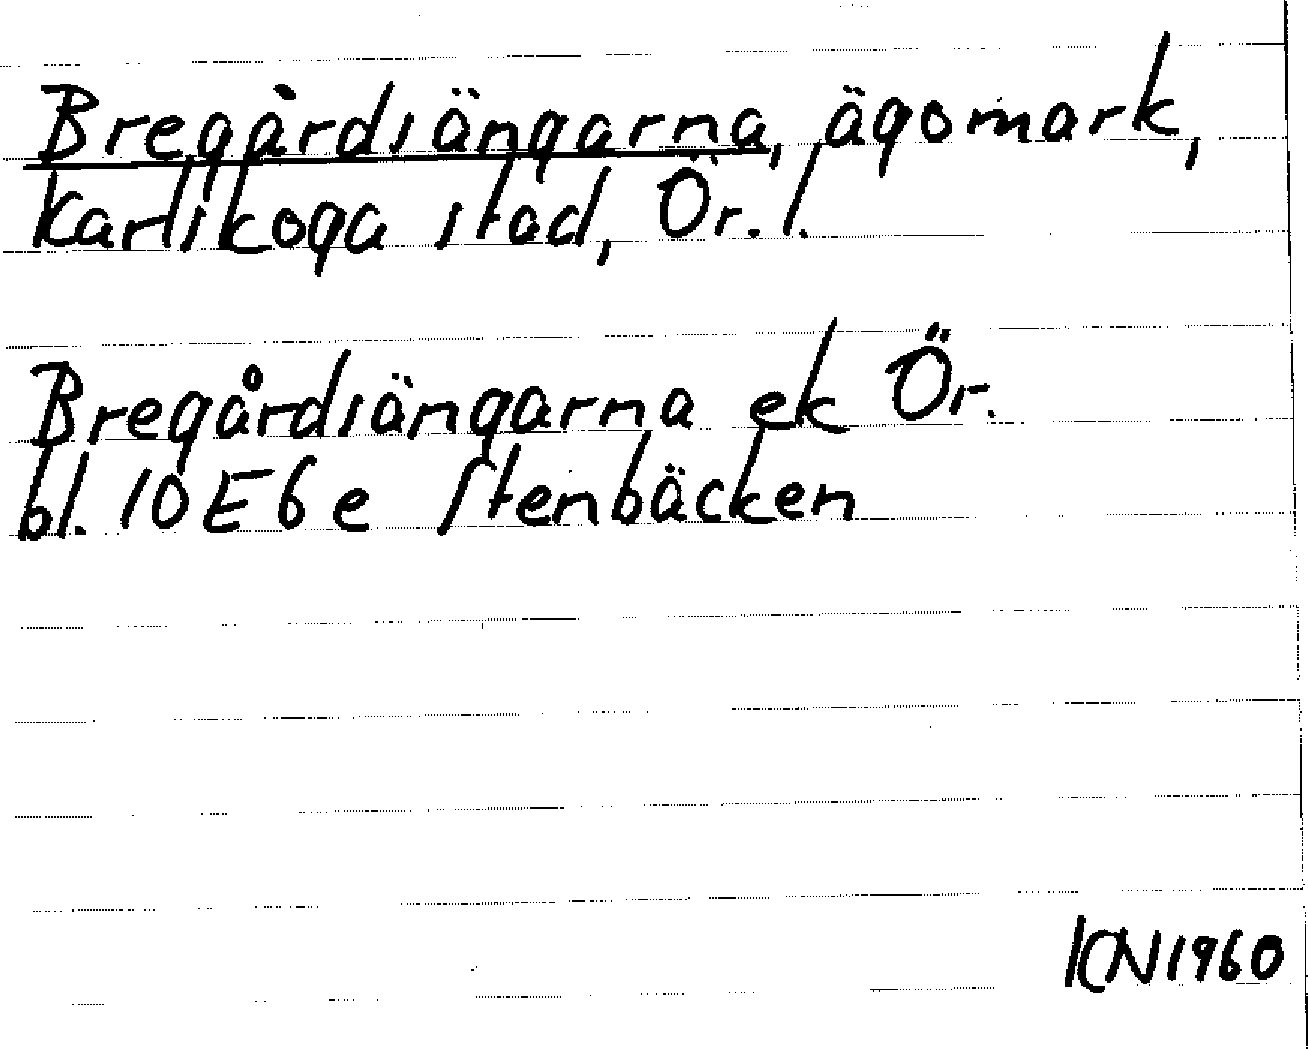 Bregårdsängarna, ägomark,
Karlskoga stad, Ör. l.
Bregårdsängarna ek Ör.
bl. 10 E 6 e Stenbäcken
KN 1960